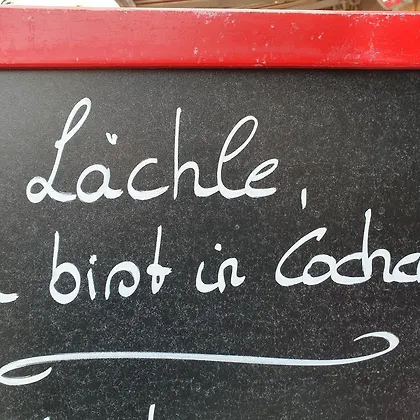 Lächle,
bist in Cocha